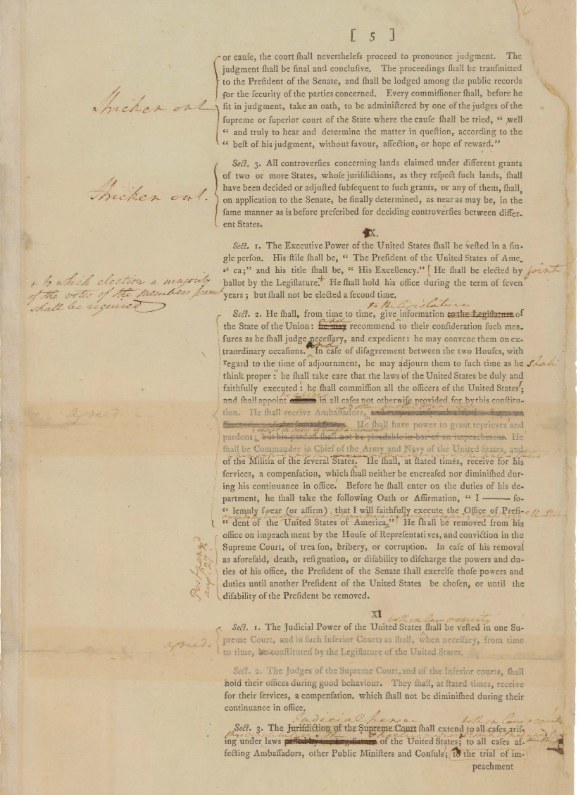 [ 5 ]
or cause, the court shall nevertheless proceed to pronounce judgment. The
judgment shall be final and conclusive. The proceedings shall be transmitted
to the President of the Senate, and shall be lodged among the public records
for the security of the parties concerned. Every commissioner shall, before he
sit in judgment, take an oath, to be administered by one of the judges of the
supreme or superior court of the State where the cause shall be tried, " well
" and truly to hear and determine the matter in question, according to the
" best of his judgment, without favour, affection, or hope of reward."
Stricken out
Sect. 3. All controversies concerning lands claimed under different grants
of two or more States, whose jurisdictions, as they respect such lands, shall
have been decided or adjusted subsequent to such grants, or any of them, shall,
on application to the Senate, be finally determined, as near as may be, in the
same manner as is before prescribed for deciding controversies between differ-
ent States.
Stricken out.
X.
Sect. 1. The Executive Power of the United States shall be vested in a sin-
gle person. His stile shall be, " The President of the United States of Ame-
" ca;" and his title shall be, " His Excellency." He shall be elected by joint
ballot by the Legislature. + He shall hold his office during the term of seven
years ; but shall not be elected a second time.
+ to which election a majority
of the votes of the members present
shall be required
to the Legislature
Sect. 2. He shall, from time to time, give information to the Legislature of
the State of the Union : and he may recommend to their consideration such mea-
sures as he shall judge necessary, and expedient : he may convene them on ex-
traordinary occasions. and In case of disagreement between the two Houses, with
regard to the time of adjournment, he may adjourn them to such time as he shall
think proper : he shall take care that the laws of the United States be duly and
faithfully executed : he shall commission all the officers of the United States ;
and shall appoint in all cases not otherwise provided for by this constitu-
tion. He shall receive Ambassadors,
He shall have power to grant reprieves and
pardons ; but his pardon shall not be pleadable in bar of an impeachment. He
shall be Commander in Chief of the Army and Navy of the United States,
of the Militia of the several States. He shall, at stated times, receive for his
services, a compensation, which shall neither be encreased nor diminished dur-
ing his continuance in office. Before he shall enter on the duties of his de-
partment, he shall take the following Oath or Affirmation, " I —— so-
" lemnly swear (or affirm) that I will faithfully execute the Office of Presi-
" dent of the United States of America," He shall be removed from his
office on impeachment by the House of Representatives, and conviction in the
Supreme Court, of treason, bribery, or corruption. In case of his removal
as aforesaid, death, resignation, or disability to discharge the powers and du-
ties of his office, the President of the Senate shall exercise those powers and
duties until another President of the United States be chosen, or until the
disability of the President be removed.
agreed
Postponed
XI
both in law & equity
Sect. 1. The Judicial Power of the United States shall be vested in one Su-
preme Court, and in such Inferior Courts as shall, when necessary, from time
to time, be constituted by the Legislature of the United States.
agreed.
Sect. 2. The Judges of the Supreme Court, and of the Inferior courts, shall
hold their offices during good behaviour. They shall, at stated times, receive
for their services, a compensation, which shall not be diminished during their
continuance in office.
Judicial Power
Sect. 3. The Jurisdiction of the Supreme Court shall extend to all cases aris-
ing under laws passed by the Legislature of the United States; to all cases af-
fecting Ambassadors, other Public Ministers and Consuls; to the trial of im-
peachment